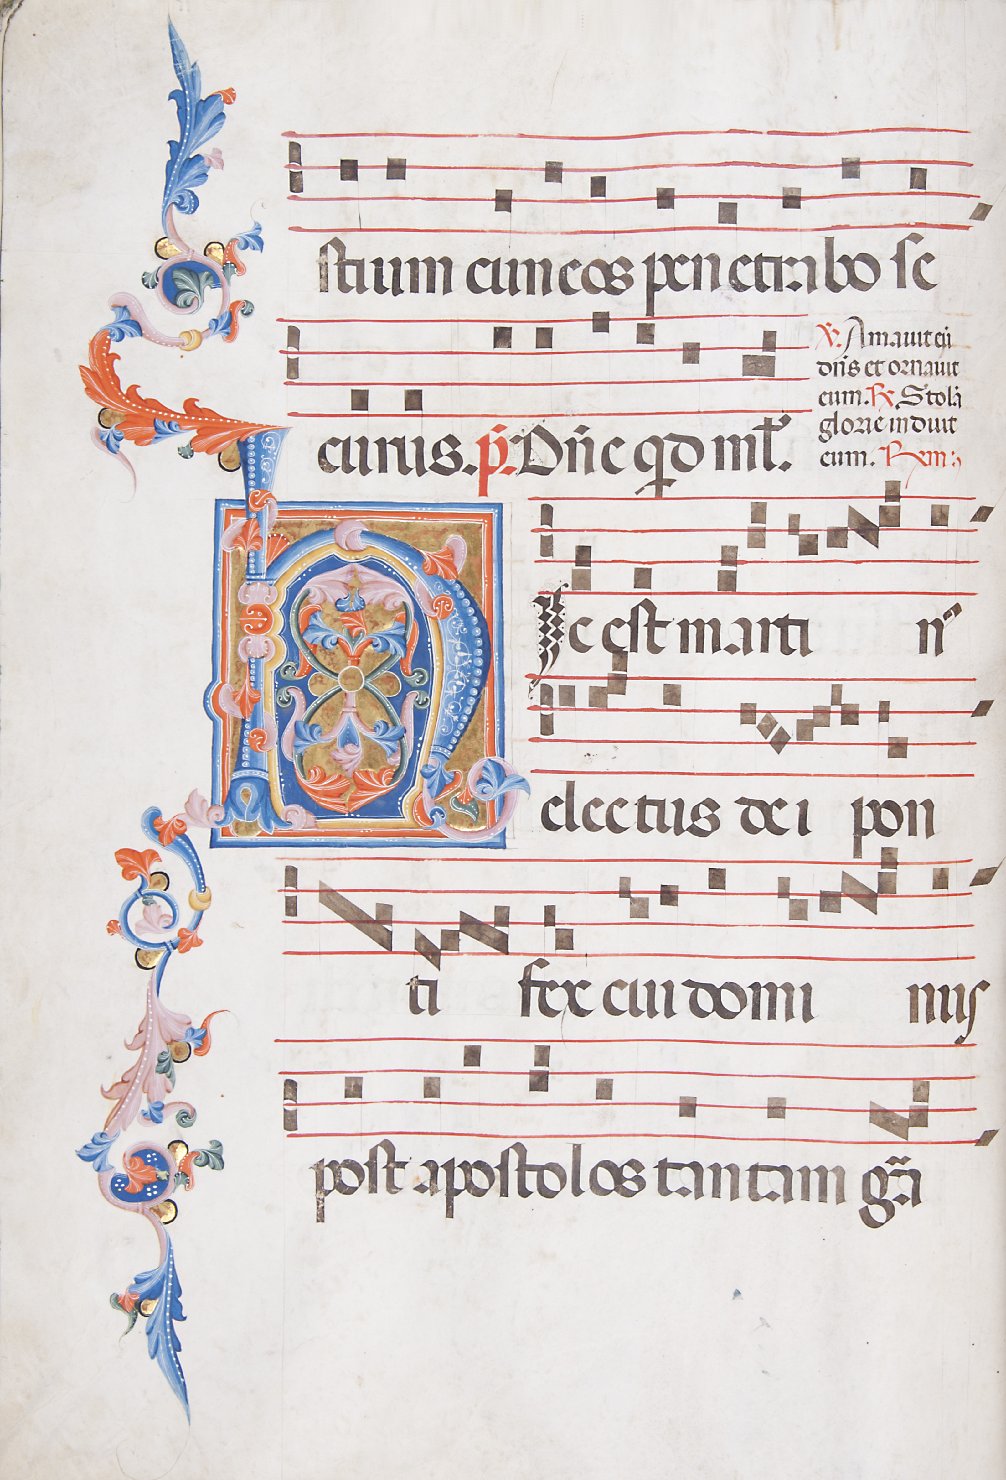 stium cuneos penetrabo se
curus. p̄. Dn̄e qd̄ ml̄t.
℣. Amauit eū
dn̄s et ornauit
eum. ℟. Stolā
glorie induit
eum.
Hic est marti n9
electus dei pon
ti fex cui domi nus
post apostolos tantam grā